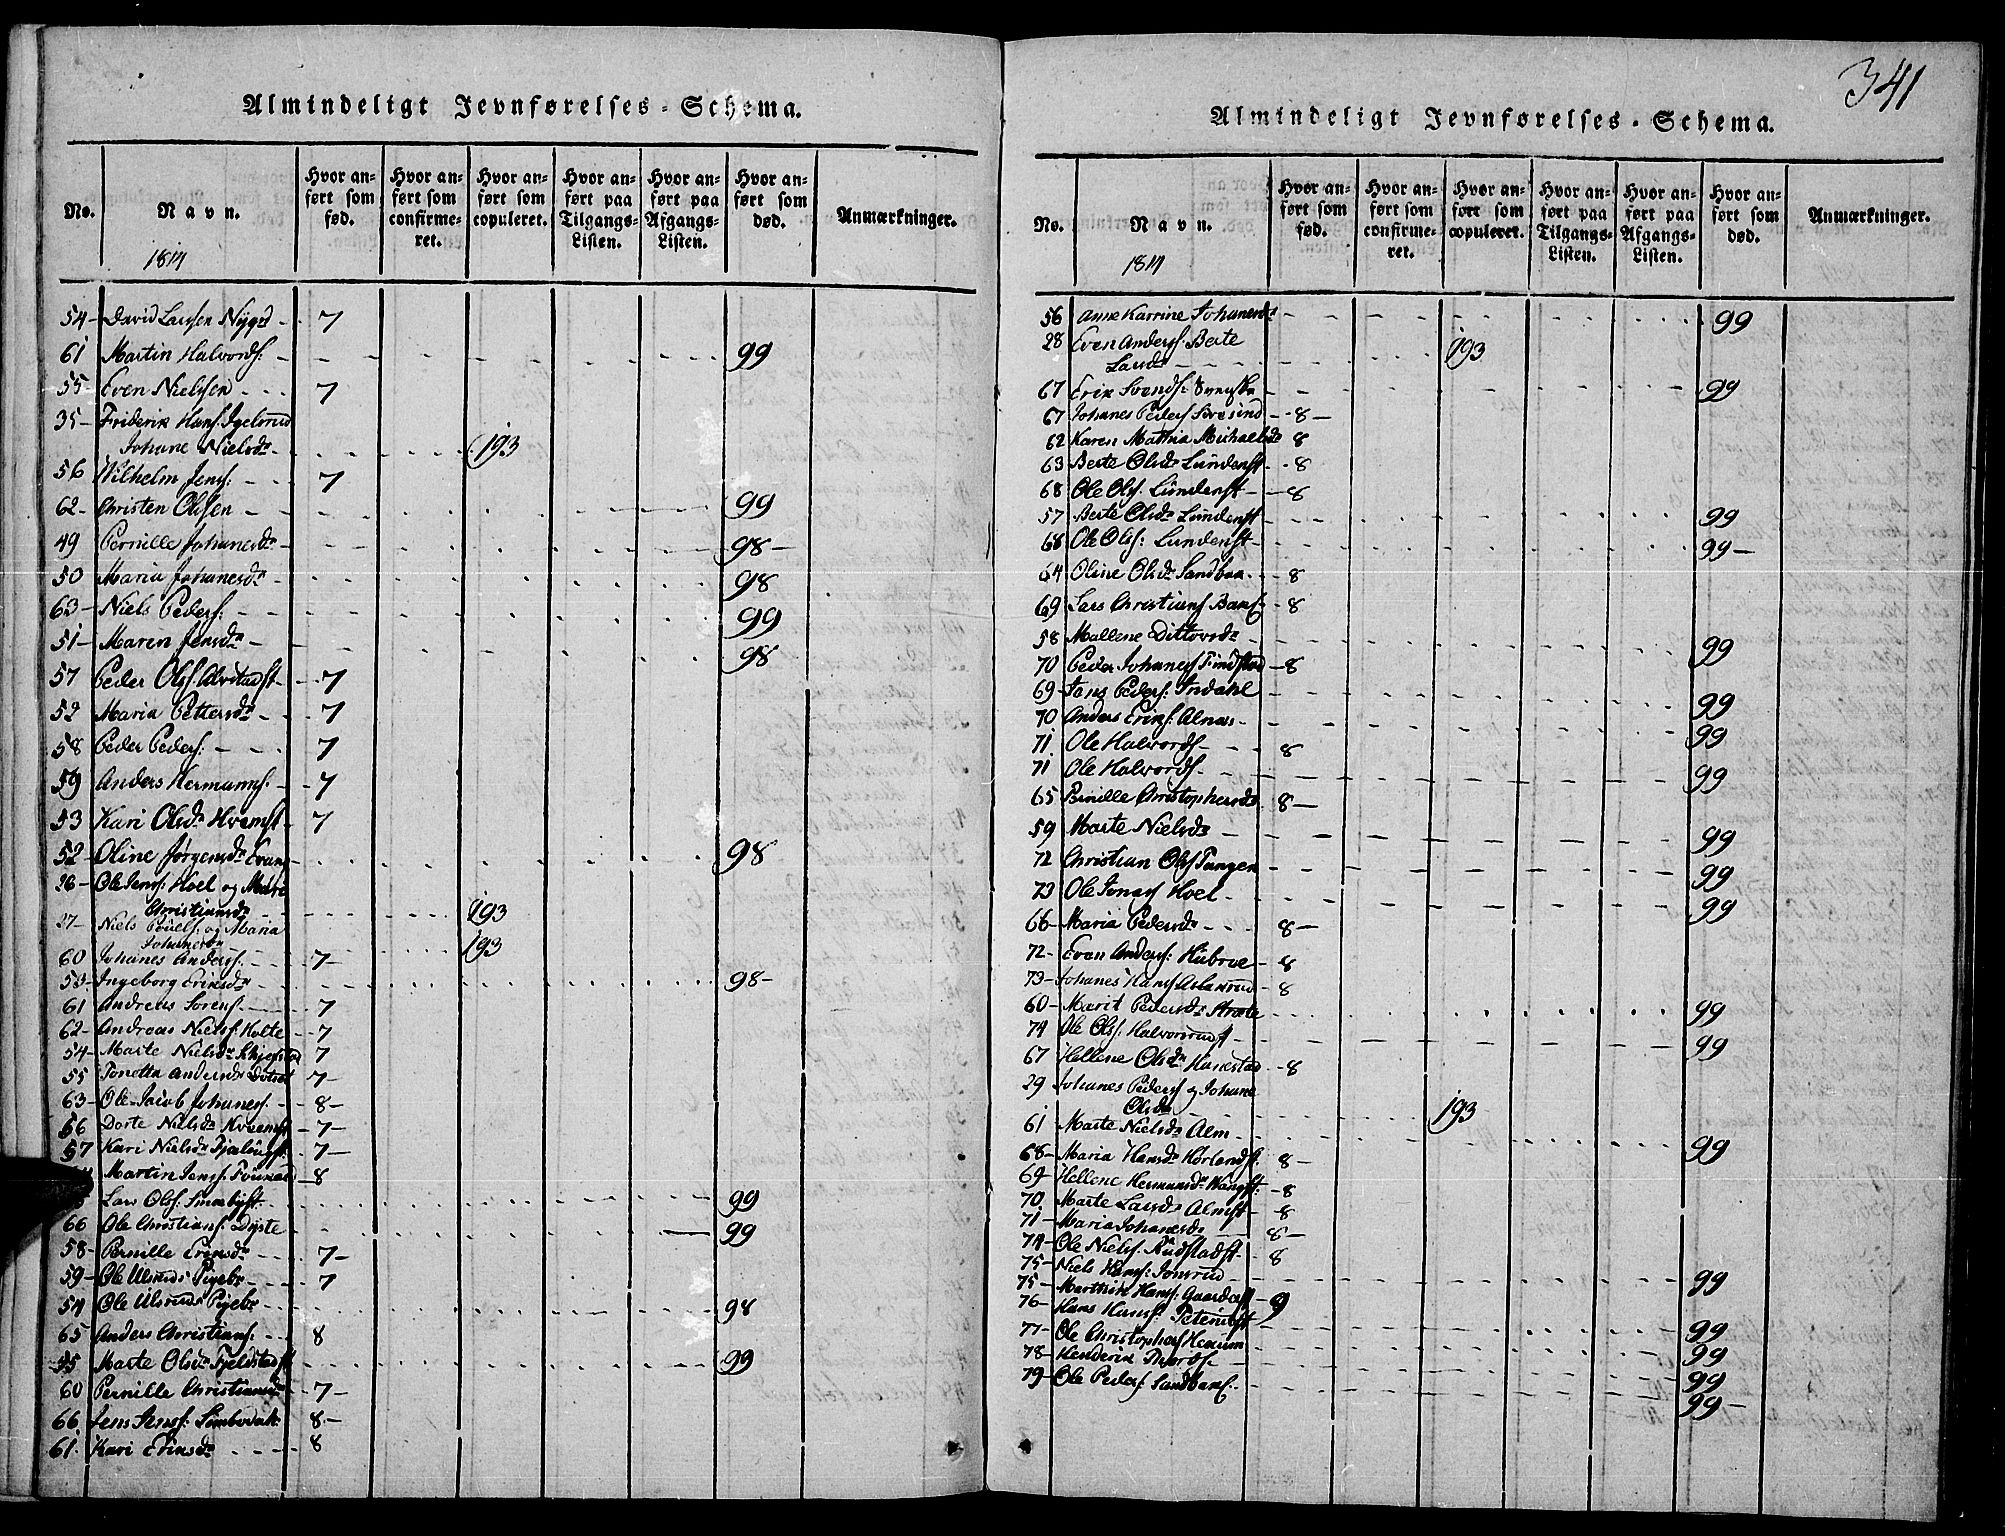 341
Almindeligt Jevnførelses-Schema.
No.
Navn.
Hvor anført som fød.
Hvor anført som confirmeret.
Hvor anført som copuleret.
Hvor anført paa Tilgangs-Listen.
Hvor anført paa Afgangs-Listen.
Hvor anført som død.
Anmærkninger.
1814
54 - David Larssen Nygrd - 7
61 Martin Halvords: 99
55 Even Nielssen 7
35 - Friderik Hans:
Johane Nielsdr 193
56 Wilhelm Jens: 7
62 - Christen Olssen 99
49 Pernille Johanesdr 98 -
50 Maria Johanesdr 98
63 - Niels Peders: 99
51 - Maren Jensdr 98
57 Peder Ols: 7
52 Maria Pettersdr 7
58 Peder Peders: 7
59 Anders Hermanns: 7
53 Kari Olsdr Hvamst 7
52 - Oline Jørgensdr Evang 98
26 - Ole Jens: Hoel og Mari
Christiansdr 193
27 - Niels Pouels: og Maria
Johanesdr 193
60 Johanes Anders: 7 -
53 - Ingeborg Eriksdr 98 -
61 Andreas Sørens: 7
62 - Andreas Niels: Holte 7
54 - Marte Nielsdr 7
55 Tonetta Andersdr 7 -
63 - Ole Jacob Johanes: 8 -
56 Dorte Nielsdr Kvæmst 7 -
57 Kari Nielsdr 7 -
Martin Jens: 8
Lars Ols: 99
66 Ole Christians: Dyste 99
58 - Pernille Eriksdr 7 -
59 - Ole Ulsruds Pigebr 7
54 Ole Ulsruds Pigebr 98
65 Anders Christians: 8
55 Marte Olsdr Fjeldstadst 99
60 Pernille Christiansdr 7 -
66 Jens Jens: 8 -
61. Kari Eriksdr 8
Almindeligt Jevnførelses-Schema.
No.
Navn.
Hvor anført som fød.
Hvor anført som confirmeret.
Hvor anført som copuleret.
Hvor anført paa Tilgangs-Listen.
Hvor anført paa Afgangs-Listen.
Hvor anført som død.
Anmærkninger.
1814
56 Anne Karrine Johanesdr 99
28 Even Anders: Berte
Larsdr 193
67 Erik Svends: 99
67 Johanes Peders: 8 -
62 Karen Mathia Michaelsdr 8
63 Berte Olsdr Lundenst 8
68 Ole Ols: Lundenst 8
57 Berte Olsdr Lundenst 99
68 Ole Ols: Lundenst 99 -
64 Oline Olsdr Sandbak 8
69 Lars Christians: 8
58 Mallene Dittovsdr 99
70 Peder Johanes: Findstad 8
69 - Jens Peders: Indahl 99
70 Anders Eriks: Alnæs 99
71 Ole Halvords: 8
71 Ole Halvords: 99
65 Pernille Christophersdr 8 -
59 Marte Nielsdr 99
72 Christian Ols: Tangen 99
73 Ole Jonas: Hoel 99
66 - Maria Pedersdr 8 -
72 - Even Anders: Hubroe 8
73 - Johanes Hans: Aslaksrud 8
60 - Marit Pedersdr 99
74 Ole Ols: Halvorsrudst 99
67 Hellene Olsdr Hanestad 8
29 Johanes Peders: og Johane
Olsdr 193
61 Marte Nielsdr Alm 99
68 - Maria Hansdr 8 -
69 Hellene Hermansdr Wangst: 8
70 Marte Larsdr Almst 8
71 - Maria Johanesdr 8 -
74 Ole Niels: Rudstadst 8
75 - Niels Hans: Jonsrud 99
75 - Marthin Hans: 9
76 - Hans Hans: 99
77 - Ole Christophers: 99
78 - Henderik 99
79 - Ole Peders: Sandbak: 99 -